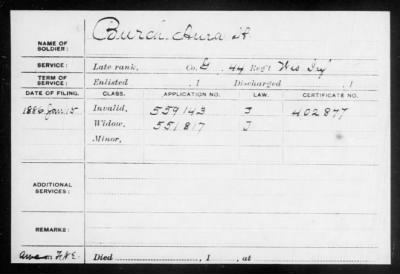 NAME OF SOLDIER: Burch
SERVICE: Late rank, Co. G, 44 Reg't Wis Inf
TERM OF SERVICE: Enlisted , 1 Discharged , 1
DATE OF FILING. CLASS. APPLICATION NO. LAW. CERTIFICATE NO.
1886 Jan 15 Invalid, 559143 J 402877
Widow, 551817 J
Minor,
ADDITIONAL SERVICES:
REMARKS:
Died , 1 , at